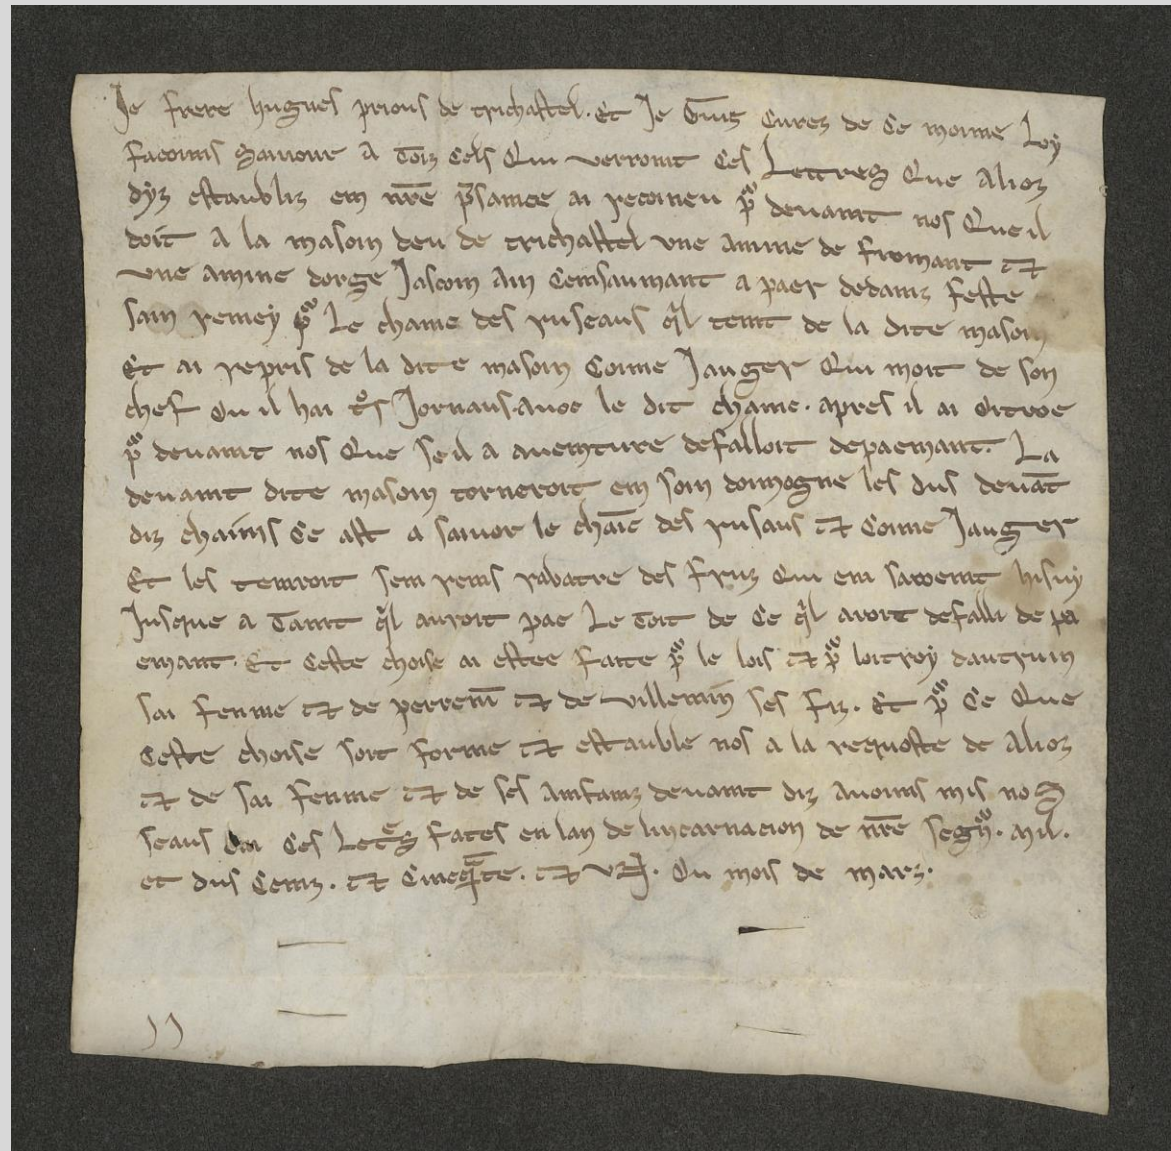 Je frere hugues prious de trichastel. Et Je Guis Curez de Ce moime Loy
facouns savoir A Toiz Cels Qui verront Ces Lettres Que Alioz
dyz estaubliz em nr̄e p̄samce ai reconneu p̃ devamt nos Que il
doit A la masom deu de trichastel vne Amine de fromant et
vne amine dorge Jascom Am Cemsaumant a paer dedamz feste
sam remey p̃ Le chame des ruseaus q̍l temt de la dite masom
Et ai repris de la dite masom Corme Jauger Qui mort de son
chef Ou il hai t̍s Jornaus. Avoc le dit chame. apres il ai Oitroe
p̃ devamt nos Que se il a avemture defalloit de paemant. La
devamt dite masom torneroit em som domogne les dus devāt
diz chaims Ce est a savoir le chāīe des rusaus et Corme Jauger
Et les temroit sem rems rabatre des fruz Qui em
Jusque a Tamt q̍l auroit pae Le Toit de Ce q̍l avoit defalli de pa
emant. Et Ceste choise ai estee faite p̃ le lois et p̃ loitroy dautruin
sai femme et de perrem̄ et de villemin̄ ses fiz. Et p̃ Ce Que
Ceste choise soit ferme et estauble nos a la requoste de Alioz
et de sai femme et de ses Amfamz devamt diz Avouns mis noz
seaus em Ces Letr̄es faites en lan de lincarnacion de nr̄e segn̄. mil.
et dus Cemz. et Cincq̄te. et VII. Ou mois de marz.